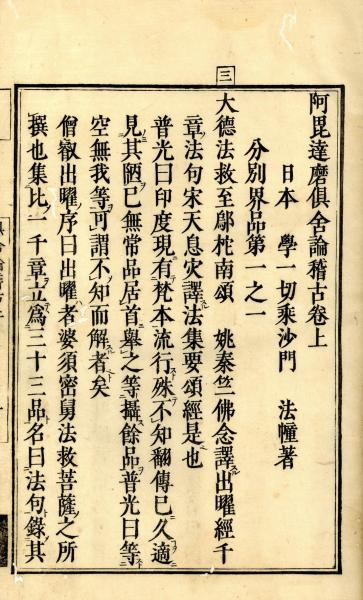 阿毘達磨俱舍論稽古卷上
日本 學一切乘沙門 法幢著
分別界品第一之一
三
大德法救至鄔柁南頌 姚秦竺佛念譯出曜經千
章法句宋天息災譯法集要頌經是也
普光曰印度現有梵本流行殊不知翻傳已久適
見其陋已無常品居首舉之等攝餘品普光曰等
空無我等可謂不知而解者矣
僧叡出曜序曰出曜者婆須密舅法救菩薩之所
撰也集比一千章立爲三十三品名曰法句錄其